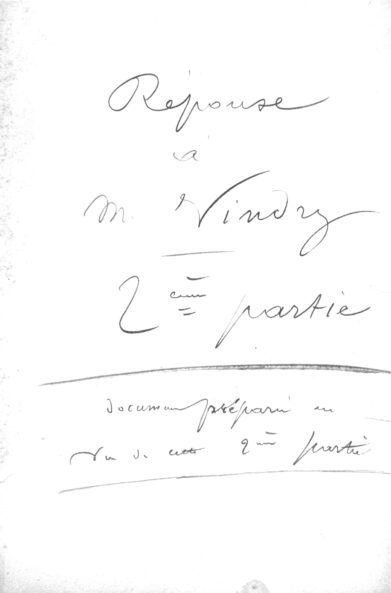 Réponse
à
M. Vindry
2ème partie
Document préparé en
vue de cette 2ème partie